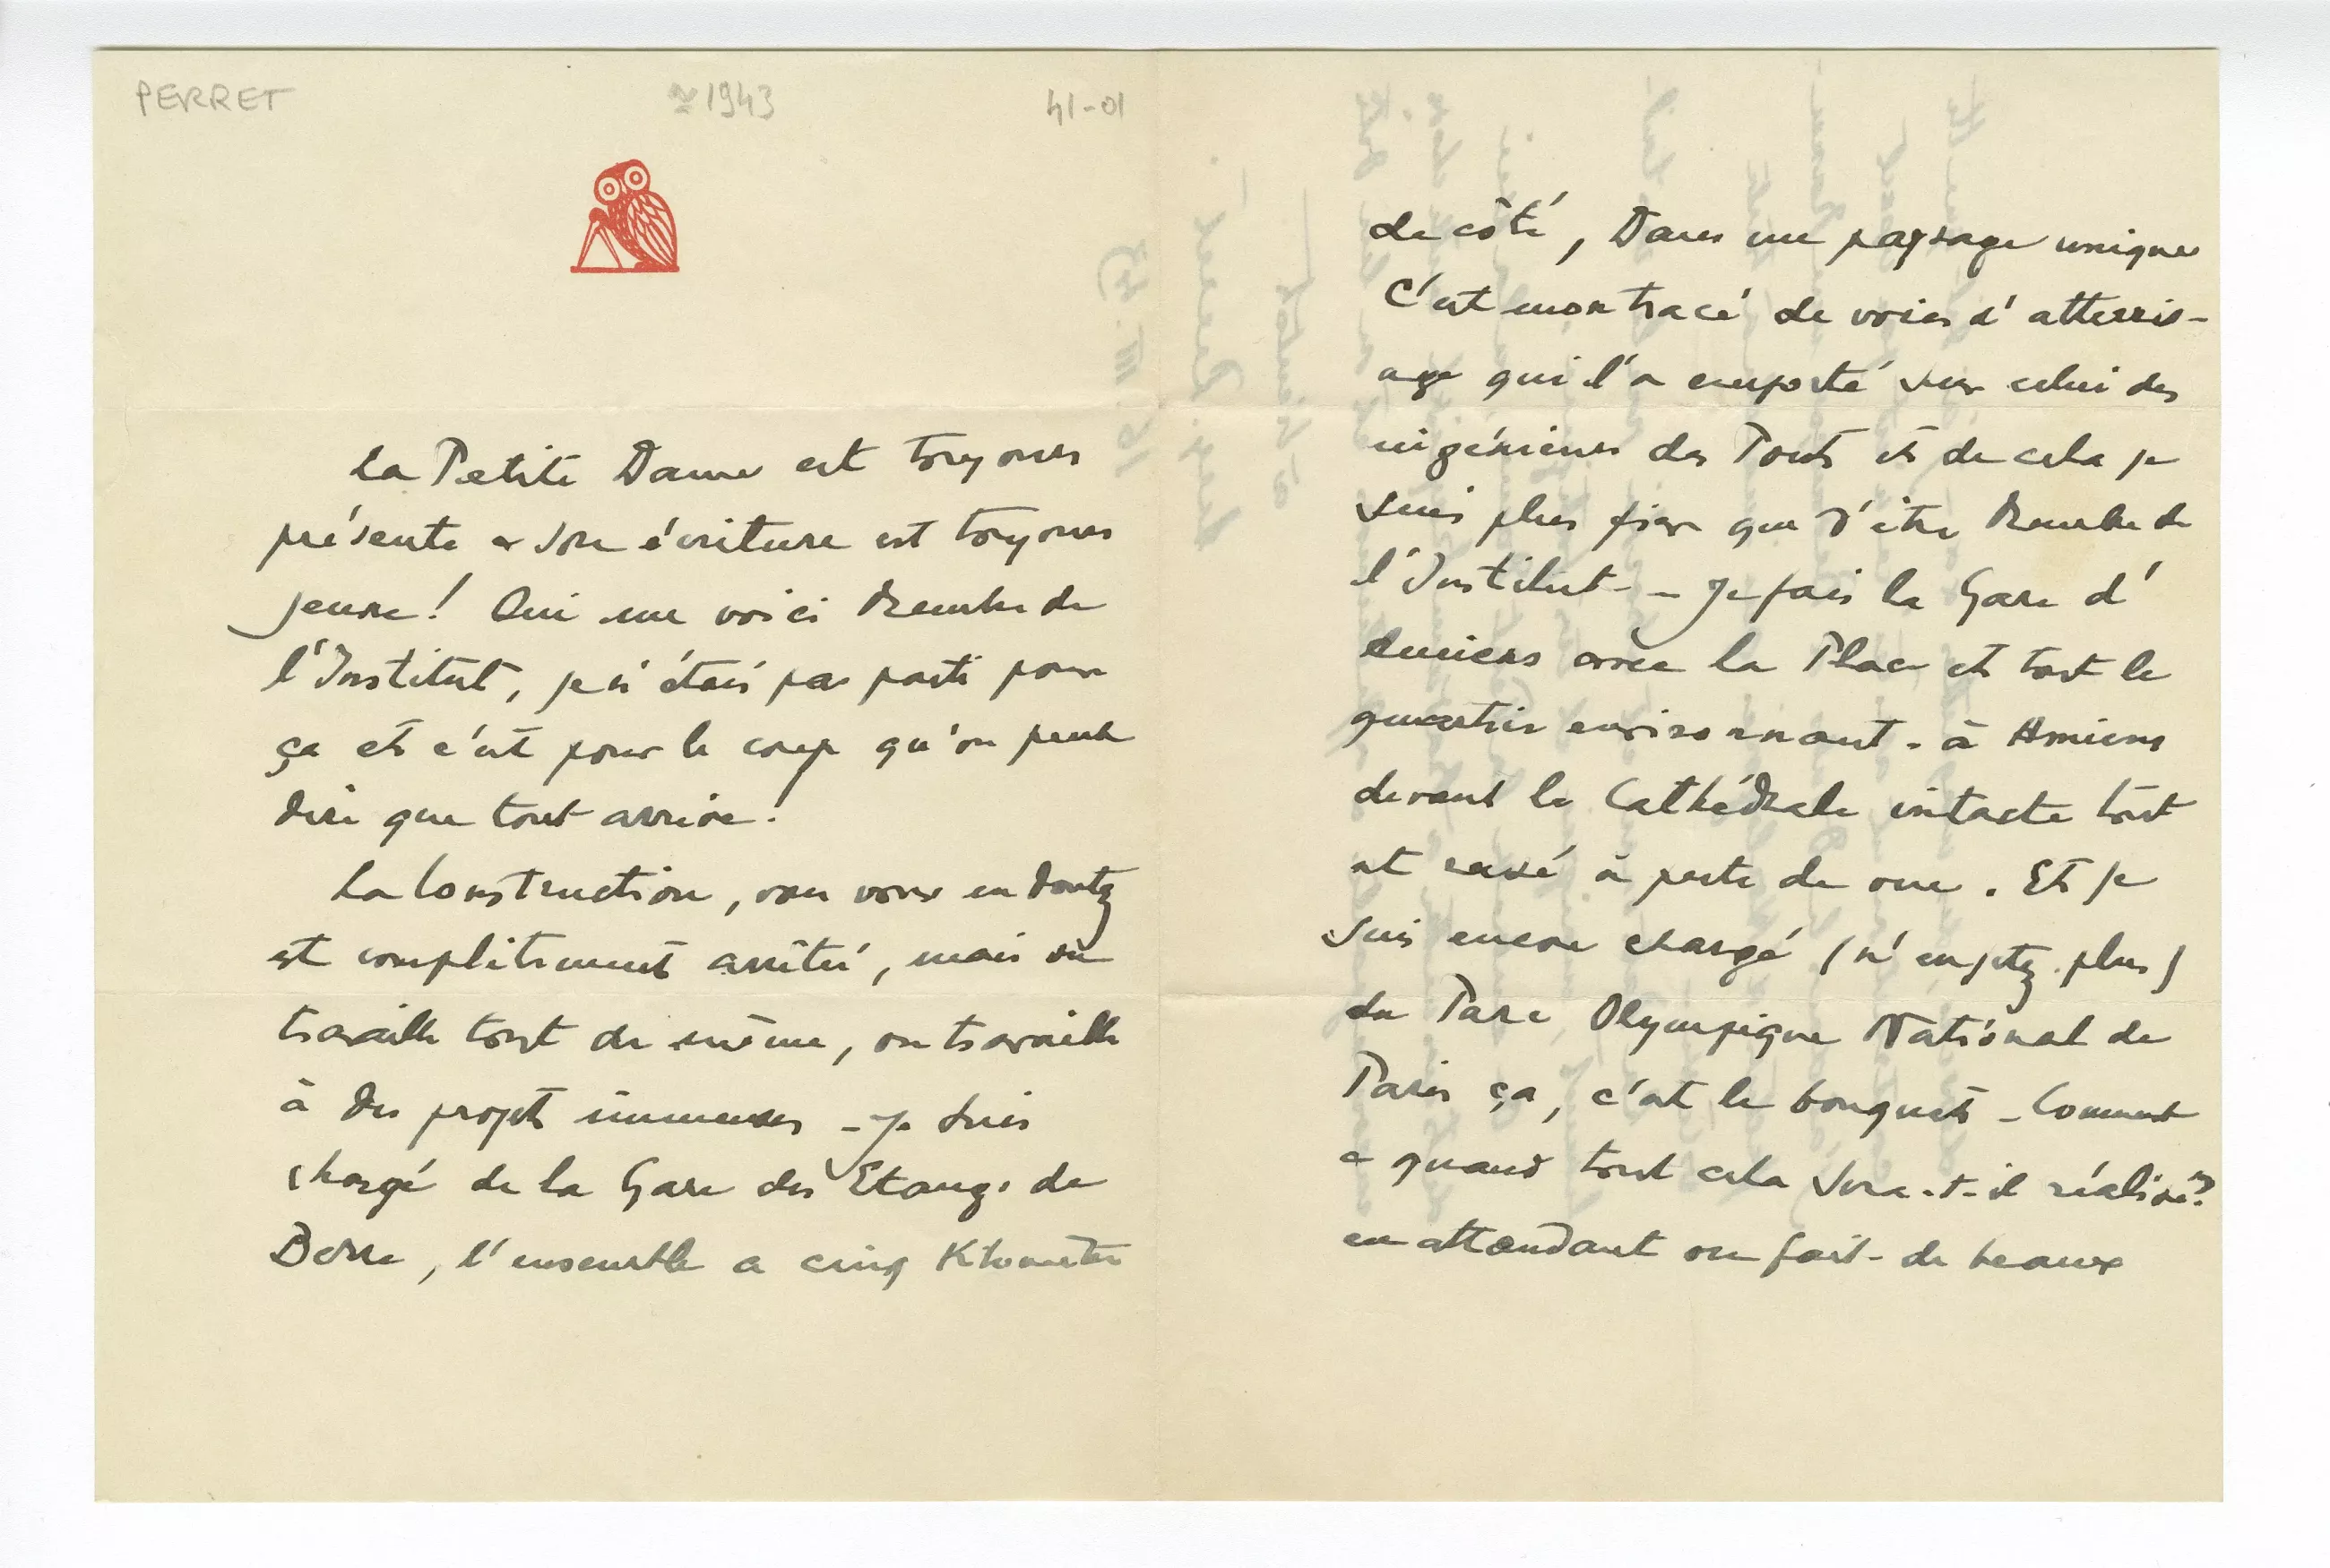 PERRET ≈ 1943 41-01
La Petite Dame est toujours
présente & son écriture est toujours
jeune ! Oui me voici Membre de
l'Institut, je n'étais pas parti pour
ça et c'est pour le coup qu'on peut
dire que tout arrive !
La Construction, vous vous en doutez
est complètement arrêtée, mais on
travaille tout de même, on travaille
à des projets immenses - Je suis
chargé de la Gare des Etangs de
Berre, l'ensemble a cinq Kilomètres
de côté, Dans un paysage unique
C'est mon tracé de voies d'atterris-
age qui l'a emporté sur celui des
ingénieurs des Ponts et de cela je
suis plus fier que d'être Membre de
l'Institut - - Je fais la Gare d'
Amiens avec la Place et tout le
quartier environnant - à Amiens
devant la Cathédrale intacte tout
est rasé à perte de vue. Et je
suis encore chargé (n'en jetez plus)
du Parc Olympique National de
Paris ça, c'est le bouquet - Comment
& quand tout cela sera-t-il réalisé?
en attendant on fait de beaux